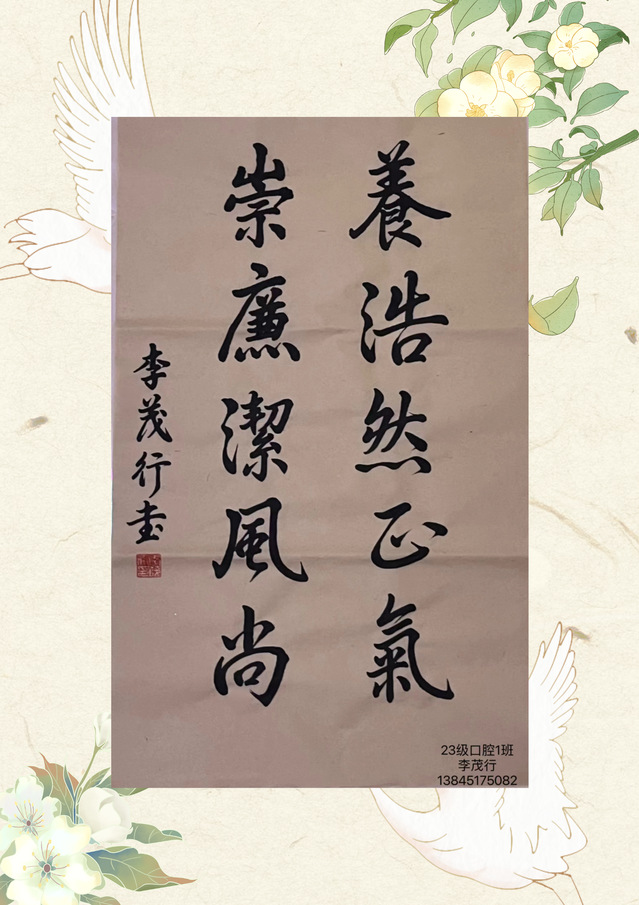 養浩然正氣
崇廉潔風尚
李茂行书
23级口腔1班
李茂行
13845175082